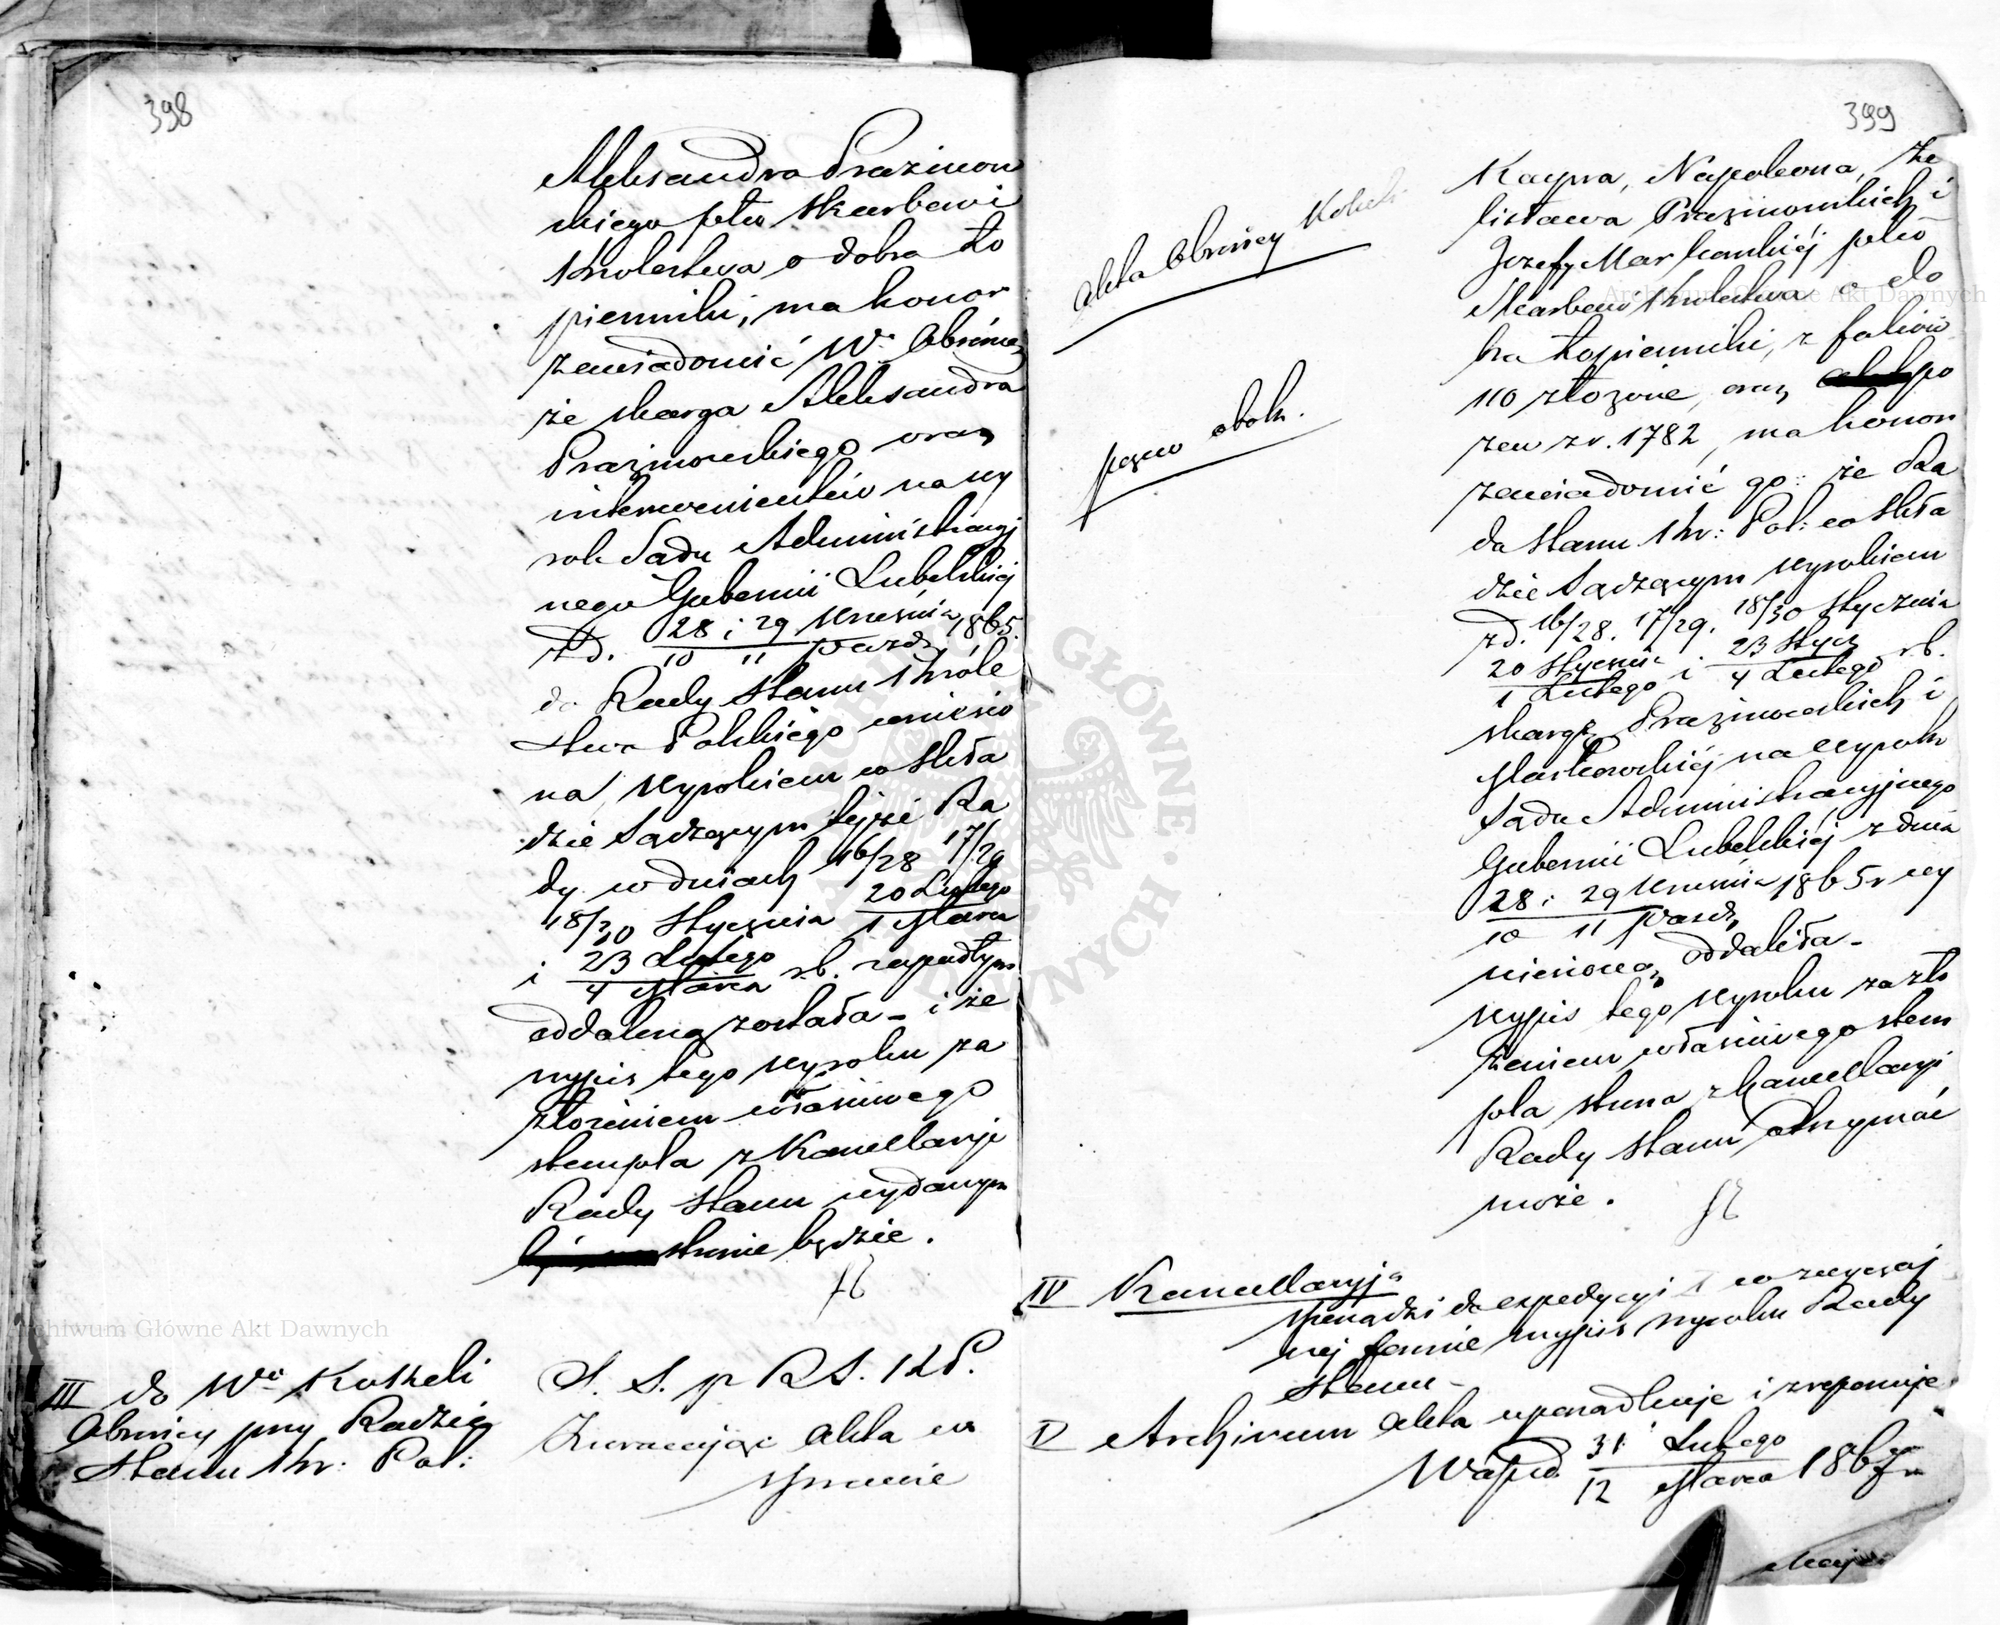 398
Aleksandra Prażmow
skiego pko Skarbowi
Królestwa o dobra Ło
pienniki, ma honor
zawiadomić Wo Obrońcę
że skarga Aleksandra
Prażmowskiego oraz
interwenientów na wy
rok Sądu Administracyj
nego Gubernii Lubelskiej
z d. 28 i 29 Września 1865.
10 11 Paźdz
do Rady Stanu Króle
stwa Polskiego wniesio
na, wyrokiem w Skła
dzie Sądzącym tejże Ra
dy w dniach 16/28 17/29
18/30 Stycznia 20 Lutego
1 Marca
i 23 Lutego r.b. zapadłym
4 Marca
oddaloną została – i że
wypis tego wyroku za
złożeniem właściwego
stempla z Kancellaryi
Rady Stanu wydanym
stronie będzie.
III do Wo Koskeli
Obrońcy przy Radzie
Stanu Kr: Pol:
S. S. p R S. K P.
Zwracając akta w
sprawie
399
akta Obrońcy Koskeli
pozew obok.
Kacpra, Napoleona, Ze
listawa Prażmowskich i
Józefy Markowskiéj pko
Skarbowi Królestwa o do
bra Łopienniki, z foliów
110 złożone, oraz po
zew z r. 1782, ma honor
zawiadomić go: że Ra
da Stanu Kr: Pol: w Skła
dzie Sądzącym wyrokiem
z d. 16/28. 17/29. 18/30 Stycznia
20 Stycznia i 23 Stycz r.b.
1 Lutego 4 Lutego
skargę Prażmowskich i
Markowskiéj na wyrok
Sądu Administracyjnego
Gubernii Lubelskiéj z dnia
28 i 29 Września 1865 r wy
10 11 Paźdz
niesioną oddaliła –
Wypis tego wyroku za zło
żeniem właściwego stem
pla strona z Kancellaryi
Rady Stanu otrzymać
może.
IV Kancellaryja
sporządzi do expedycyi w zwyczaj
nej formie wypis wyroku Rady
Stanu –
V Archiwum akta uporządkuje i zreponuje
Wajśd. 31 Lutego 1867 r
12 Marca
Archiwum Główne Akt Dawnych
Archiwum Główne Akt Dawnych
ARCHIWUM GŁÓWNE AKT DAWNYCH